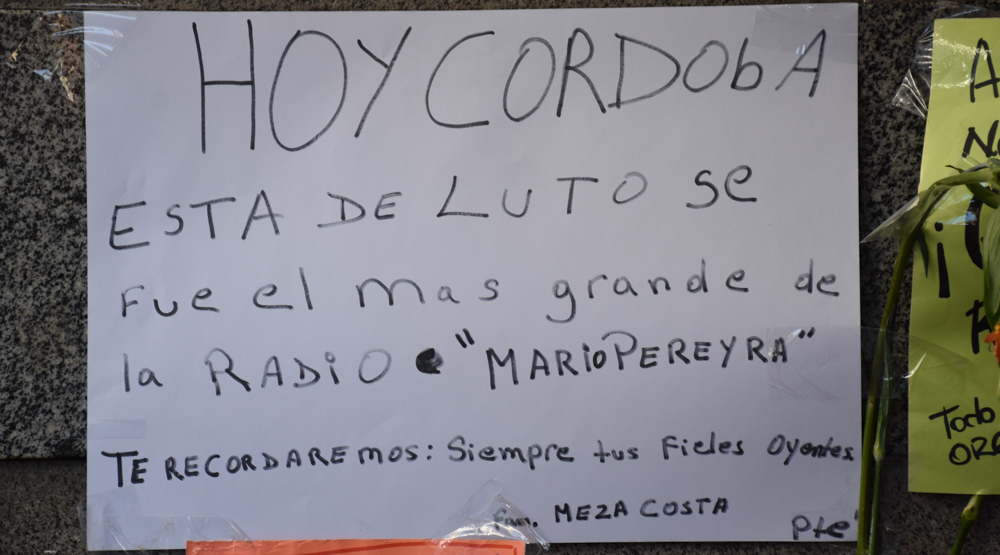 HOY CORDOBA
ESTA DE LUTO se
Fue el mas grande de
la RADIO "MARIO PEREYRA"
TE RECORDAREMOS: Siempre tus Fieles Oyentes
Fam. MEZA COSTA
Pte
A
No
¡
Todo
ORG